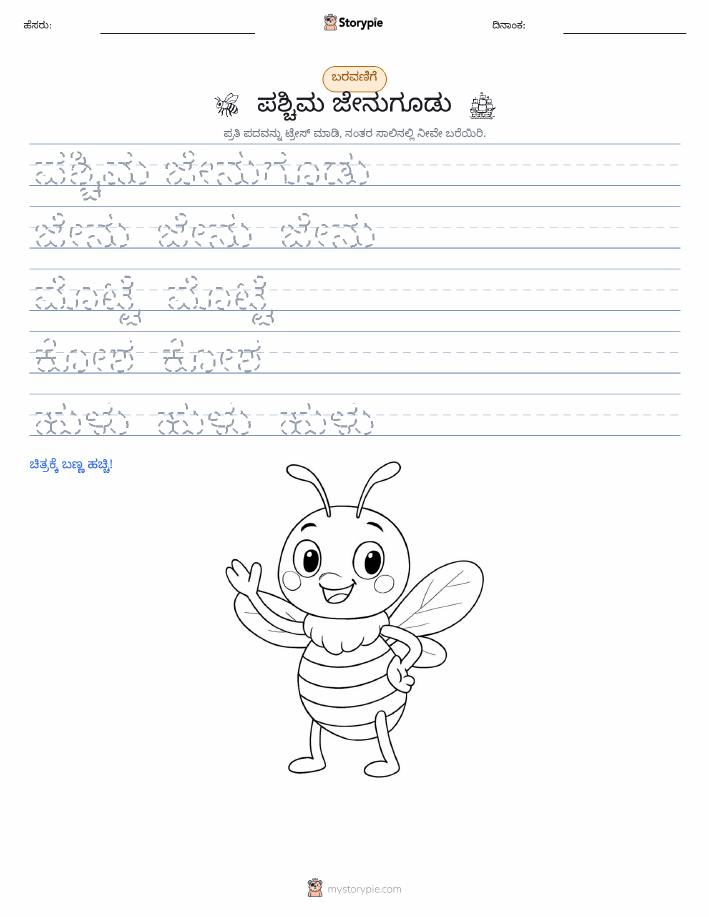 ಹೆಸರು: Storypie ದಿನಾಂಕ:
ಬರವಣಿಗೆ
ಪಶ್ಚಿಮ ಜೇನುಗೂಡು
ಪ್ರತಿ ಪದವನ್ನು ಟ್ರೇಸ್ ಮಾಡಿ, ನಂತರ ಸಾಲಿನಲ್ಲಿ ನೀವೇ ಬರೆಯಿರಿ.
ಪಶ್ಚಿಮ ಜೇನುಗೂಡು
ಜೇನು ಜೇನು ಜೇನು
ಮೊಟ್ಟೆ ಮೊಟ್ಟೆ
ಕೋಶ ಕೋಶ
ಹುಳು ಹುಳು ಹುಳು
ಚಿತ್ರಕ್ಕೆ ಬಣ್ಣ ಹಚ್ಚಿ!
mystorypie.com